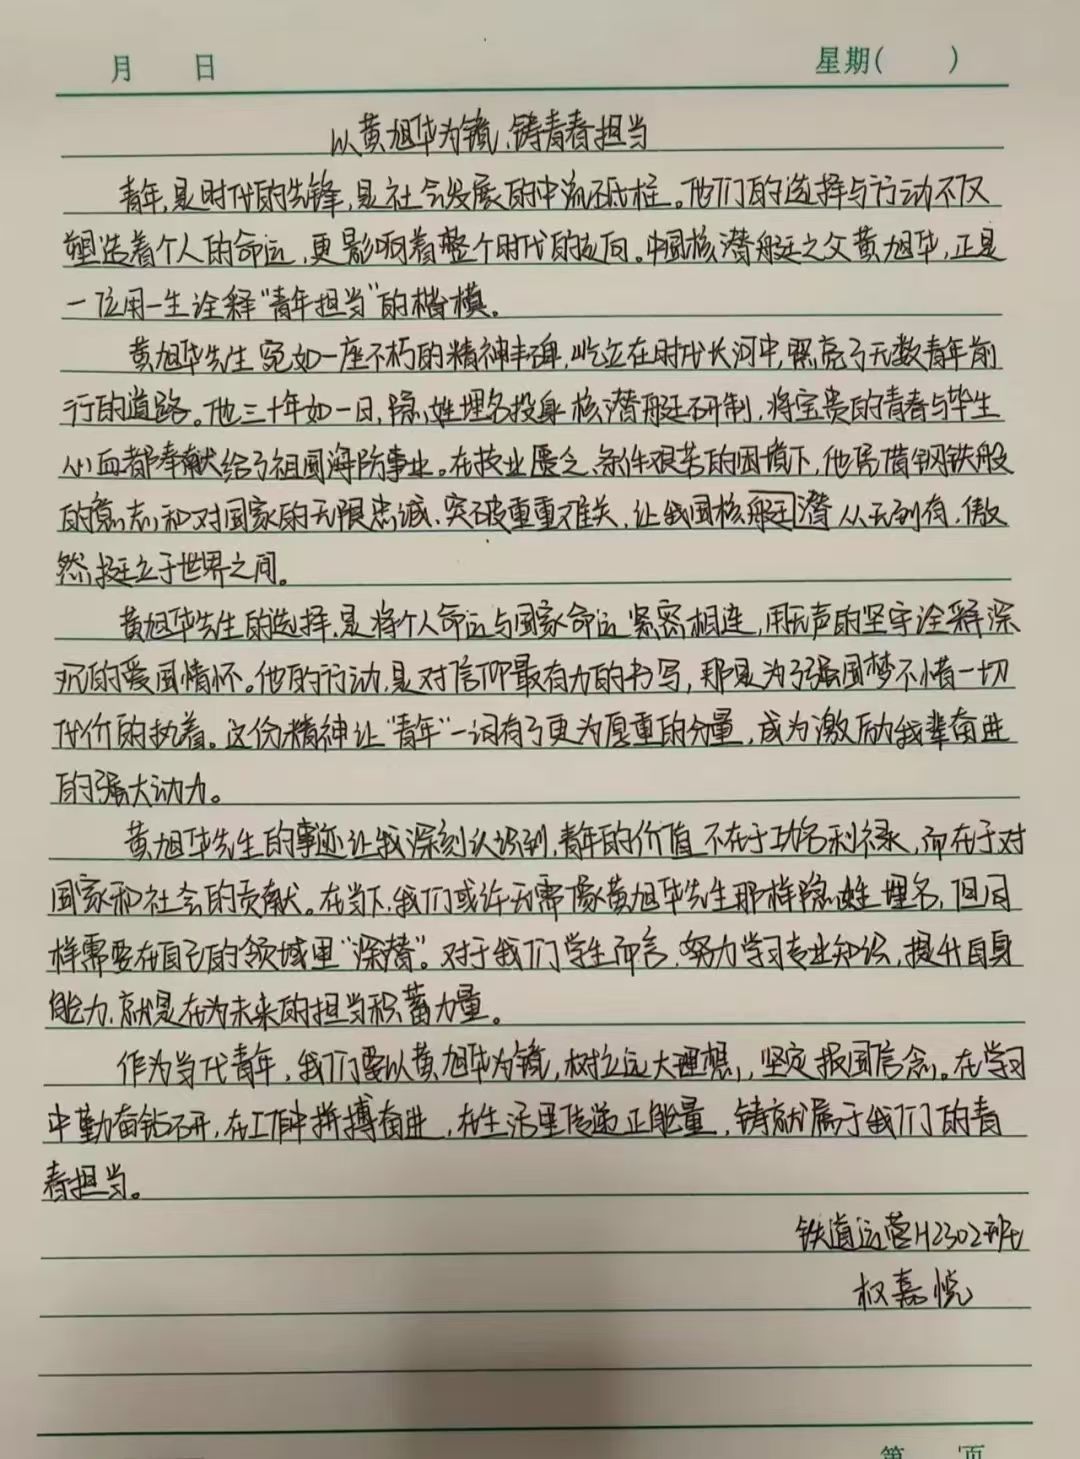 月 日 星期( )
以黄旭华为镜,铸青春担当
青年,是时代的先锋,是社会发展的中流砥柱。他们的选择与行动不仅
塑造着个人的命运,更影响着整个时代的走向。中国核潜艇之父黄旭华,正是
一位用一生诠释“青年担当”的楷模。
黄旭华先生宛如一座不朽的精神丰碑,屹立在时代长河中,照亮了无数青年前
行的道路。他三十年如一日,隐姓埋名投身核潜艇研制,将宝贵的青春与毕生
心血都奉献给了祖国海防事业。在技业匮乏、条件艰苦的困境下,他凭借钢铁般
的意志和对国家的无限忠诚,突破重重难关,让我国核艇潜从无到有,傲
然挺立于世界之间。
黄旭华先生的选择,是将个人命运与国家命运紧密相连,用无声的坚守诠释深
沉的爱国情怀。他的行动,是对信仰最有力的书写,那是为了强国梦不惜一切
代价的执着。这份精神让“青年”一词有了更为厚重的分量,成为激励我辈奋进
的强大动力。
黄旭华先生的事迹让我深刻认识到,青年的价值不在于功名利禄,而在于对
国家和社会的贡献。在当下,我们或许无需像黄旭华先生那样隐姓埋名,但同
样需要在自己的领域里“深潜”。对于我们学生而言,努力学习专业知识,提升自身
能力,就是在为未来的担当积蓄力量。
作为当代青年,我们要以黄旭华为镜,树立远大理想,坚定报国信念。在学习
中勤奋钻研,在工作中拼搏奋进,在生活里传递正能量,铸就属于我们的青
春担当。
铁道运营H2302班
权嘉悦
第 页